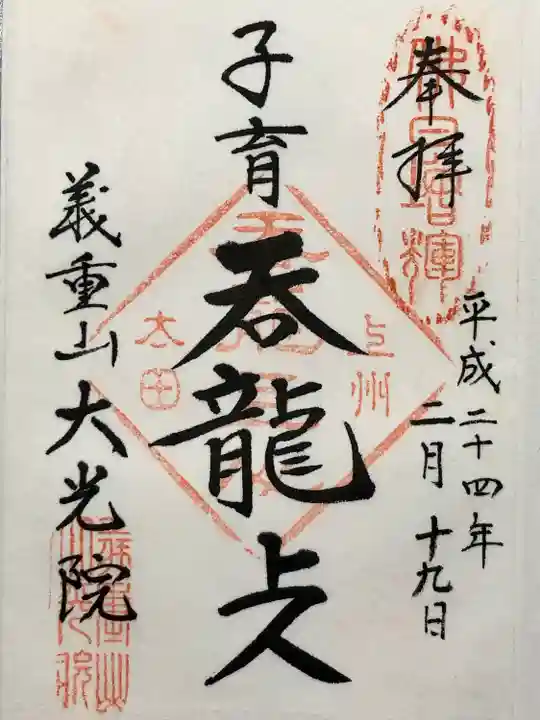 奉拝
佛日増輝
平成二十四年
二月十九日
子育呑龍上人
上州
太田
義重山大光院